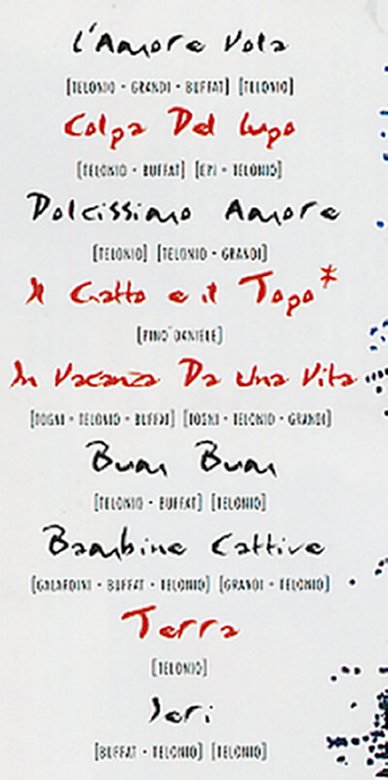 L'Amore Vola
[TELONIO - GRANDI - BUFFAT] [TELONIO]
Colpa Del Lupo
[TELONIO - BUFFAT] [EPI - TELONIO]
Dolcissimo Amore
[TELONIO] [TELONIO - GRANDI]
Il Gatto e il Topo*
[PINO DANIELE]
In Vacanza Da Una Vita
[TOGNI - TELONIO - BUFFAT] [TOGNI - TELONIO - GRANDI]
Bum Bum
[TELONIO - BUFFAT] [TELONIO]
Bambine Cattive
[GALARDINI - BUFFAT - TELONIO] [GRANDI - TELONIO]
Terra
[TELONIO]
Ieri
[BUFFAT - TELONIO] [TELONIO]